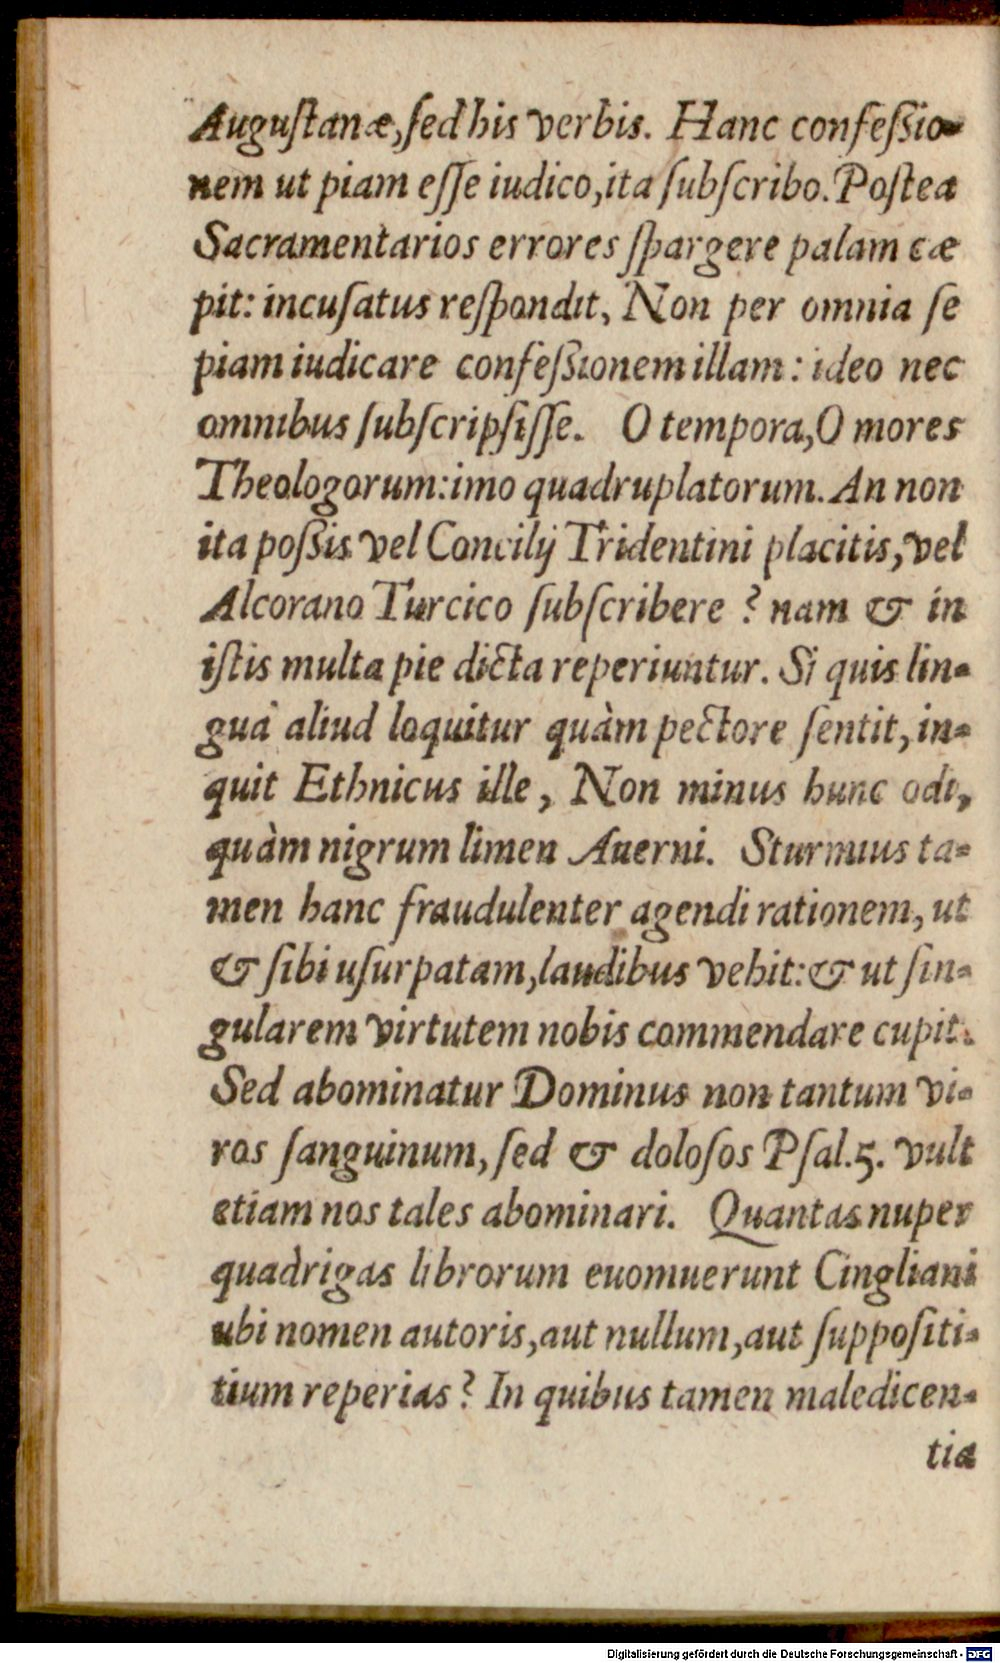 Augustanæ, sed his verbis. Hanc confeßio-
nem ut piam esse iudico, ita subscribo. Postea
Sacramentarios errores spargere palam cæ
pit: incusatus respondit, Non per omnia se
piam iudicare confeßionem illam: ideo nec
omnibus subscripsisse. O tempora, O mores
Theologorum: imo quadruplatorum. An non
ita poßis vel Concilij Tridentini placitis, vel
Alcorano Turcico subscribere? nam & in
istis multa pie dicta reperiuntur. Si quis lin-
gua aliud loquitur quàm pectore sentit, in-
quit Ethnicus ille, Non minus hunc odi,
quàm nigrum limen Auerni. Sturmius ta-
men hanc fraudulenter agendi rationem, ut
& sibi usurpatam, laudibus vehit: & ut sin-
gularem virtutem nobis commendare cupit.
Sed abominatur Dominus non tantum vi-
ros sanguinum, sed & dolosos Psal.5. vult
etiam nos tales abominari. Quantas nuper
quadrigas librorum euomuerunt Cingliani
ubi nomen autoris, aut nullum, aut supposi­ti-
tium reperias? In quibus tamen maledicen-
tia
Digitalisierung gefördert durch die Deutsche Forschungsgemeinschaft - DFG